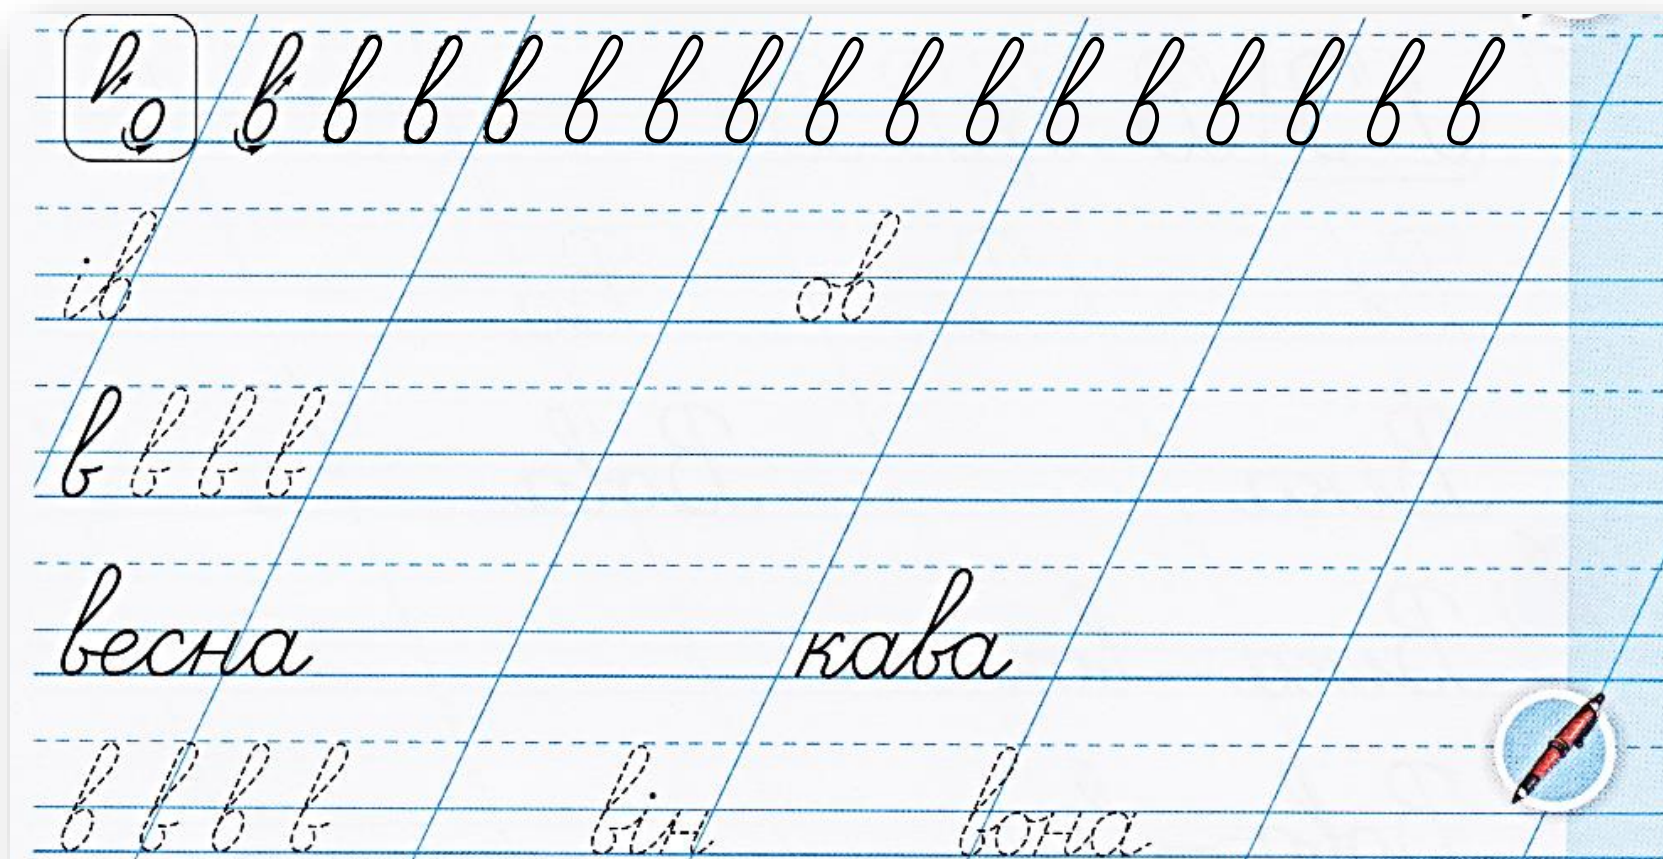 в в в в в в в в в в в в в в в в в
ів ов
в в в в
весна кава
в в в в він вона